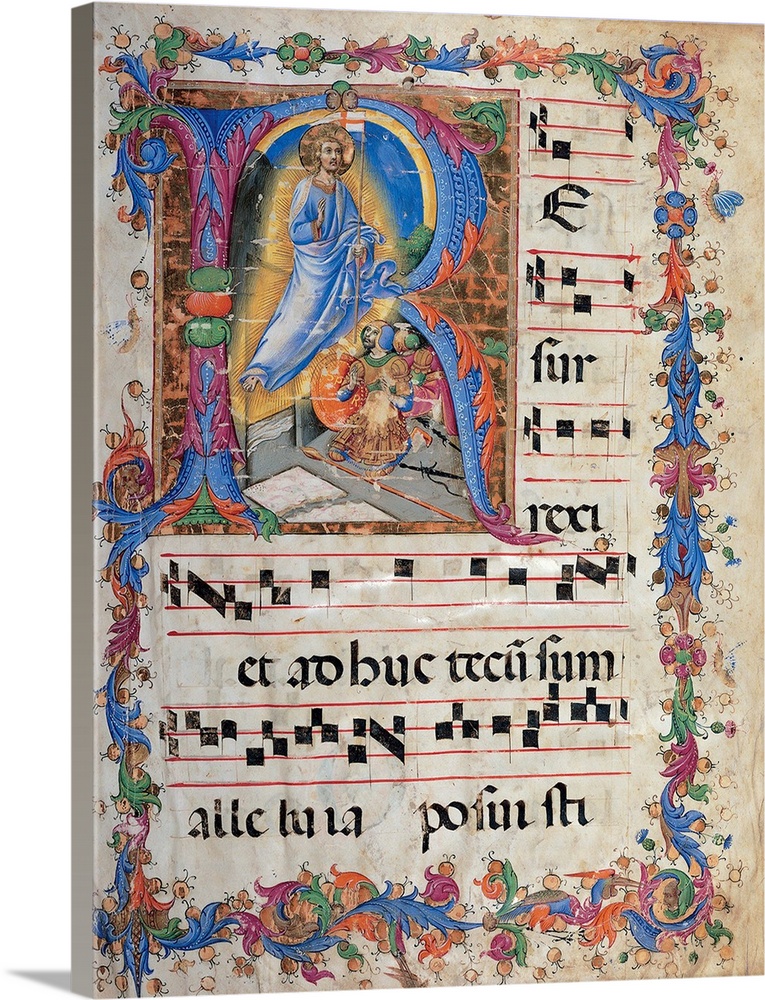 R E
sur
rexi
et adhuc tecū sum
alle lu ia posui sti